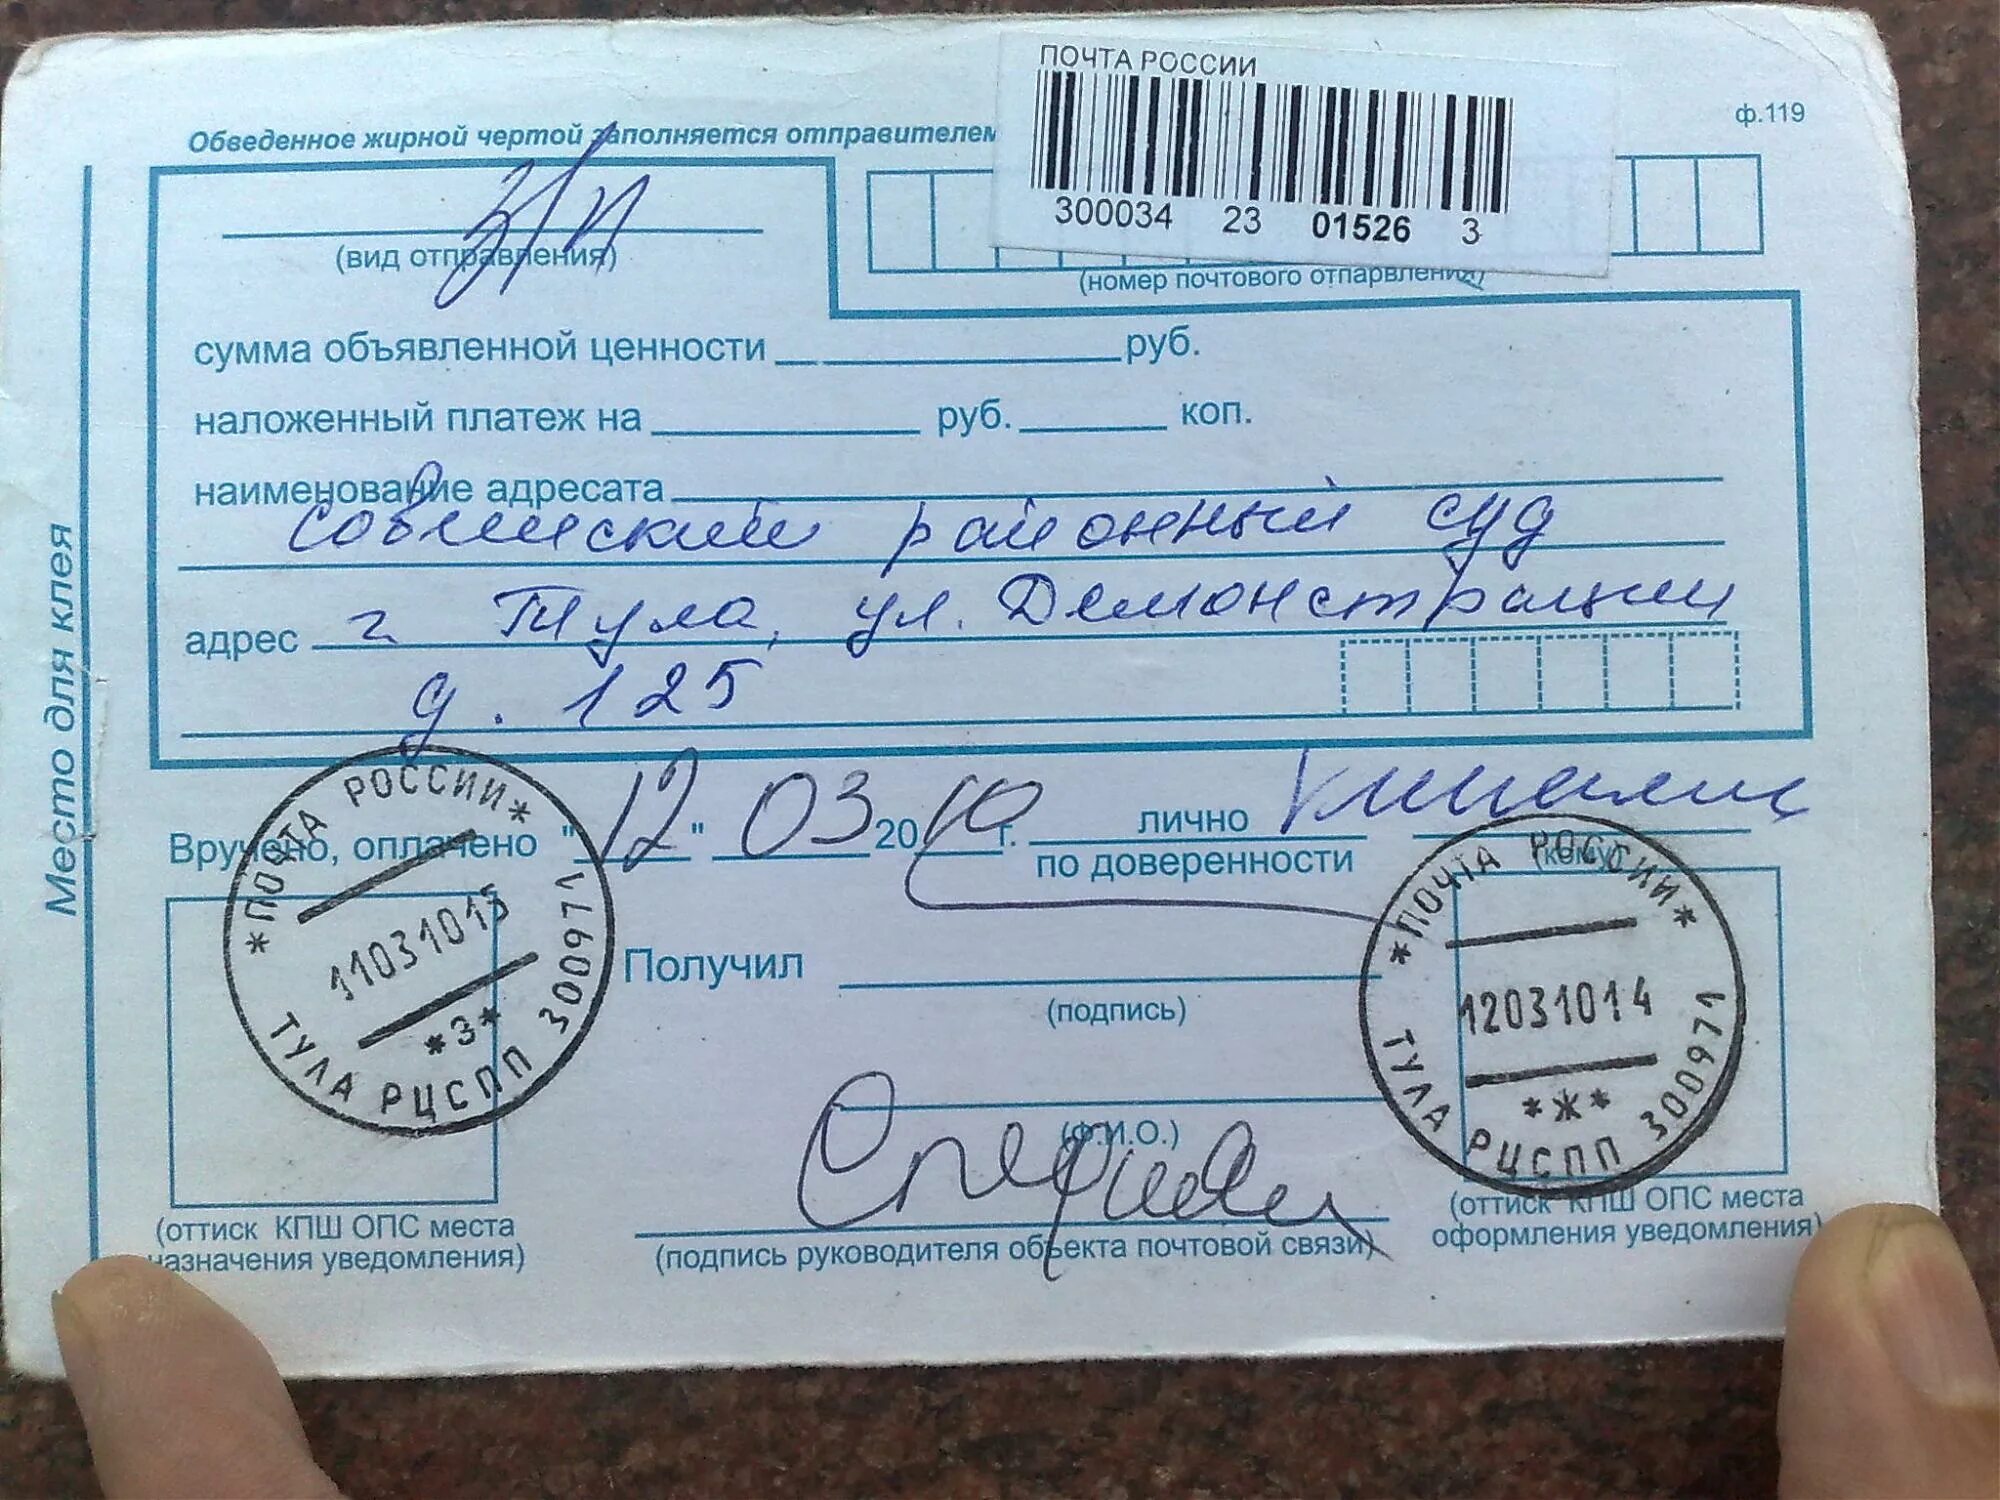 ПОЧТА РОССИИ
300034 23 01526 3
ф.119
Обведенное жирной чертой заполняется отправителем
З/п
(вид отправления)
(номер почтового отпарвления)
сумма объявленной ценности руб.
наложенный платеж на руб. коп.
наименование адресата
Советский районный суд
адрес г. Тула, ул. Демонстрации
д. 125
Место для клея
Вручено, оплачено "12" 03 2010 г. лично
по доверенности
(кому)
*ПОЧТА РОССИИ*
1103101
*З*
ТУЛА РЦСПП 300971
Получил
(подпись)
(Ф.И.О.)
(подпись руководителя объекта почтовой связи)
*ПОЧТА РОССИИ*
12031014
*Ж*
ТУЛА РЦСПП 300971
(оттиск КПШ ОПС места
назначения уведомления)
(оттиск КПШ ОПС места
оформления уведомления)